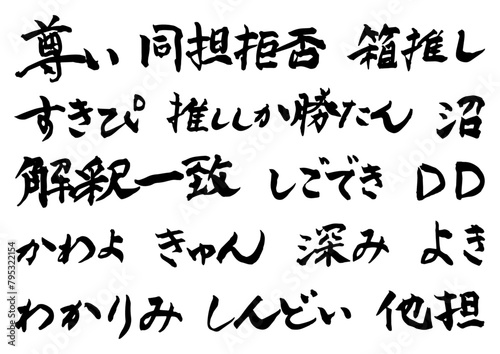 尊い 同担拒否 箱推し
すきぴ 推ししか勝たん 沼
解釈一致 しごでき DD
かわよ きゅん 深み よき
わかりみ しんどい 他担
Adobe Stock | #795322154